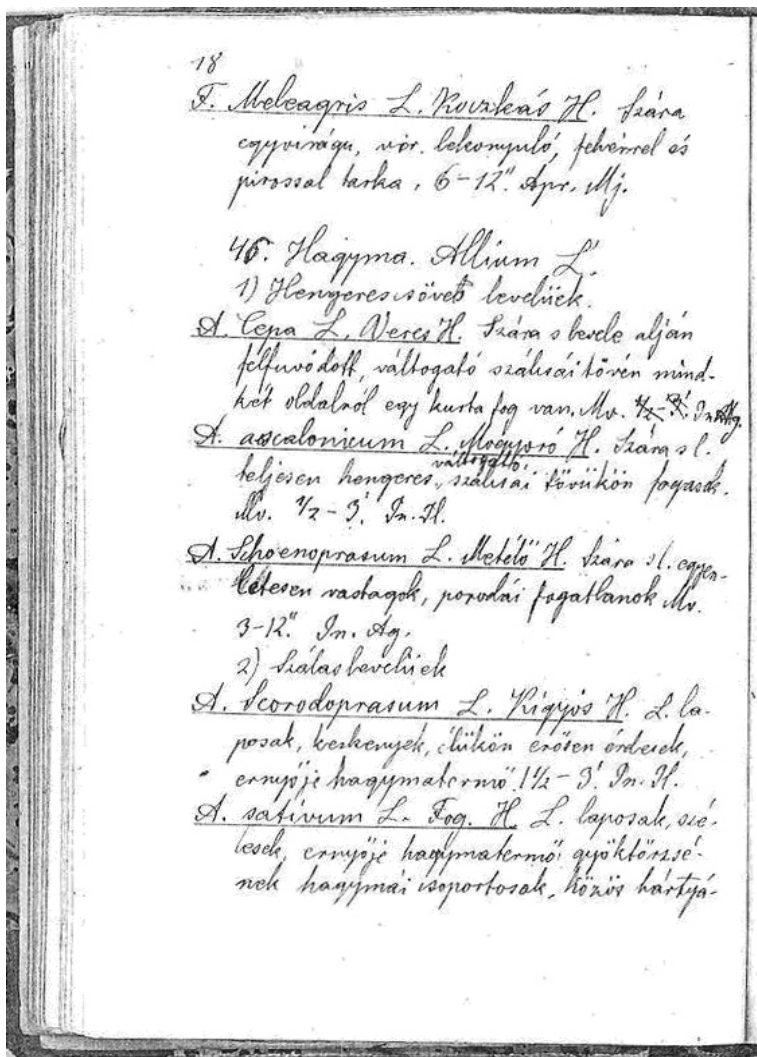 18
F. Meleagris L. Koczkás H. Szára
egyvirágu, vir. lekonyuló, fehérrel és
pirossal tarka, 6–12". Ápr. Mj.
46. Hagyma. Allium L.
1) Hengeres csöves levelüek.
A. Cepa L. Veres H. Szára s levele alján
felfuvódott, váltogató szálisái tövén mind-
két oldalról egy kurta fog van. Mv. ½–3'. Jn. Ag.
A. ascalonicum L. Mogyoró H. Szára s l.
teljesen hengeres, váltogató szálisái tövükön fogasak.
Mv. ½–3'. Jn. Jl.
A. Schoenoprasum L. Metélő H. Szára s l. egyen-
letesen vastagok, porodái fogatlanok Mv.
3–12". Jn. Ag.
2) Szálas levelüek
A. Scorodoprasum L. Kígyós H. L. la-
posak, keskenyek, élükön erősen érdesek,
ernyője hagymatermő. 1½–3'. Jn. Jl.
A. sativum L. Fog. H. L. laposak, szé-
lesek, ernyője hagymatermő: gyöktörzsé-
nek hagymái csoportosak, közös hártyá-